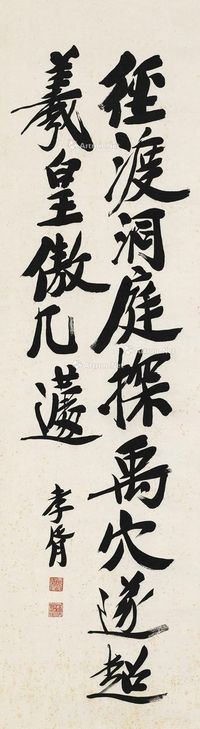 径渡洞庭探禹穴遂超
羲皇傲几蘧
李胥